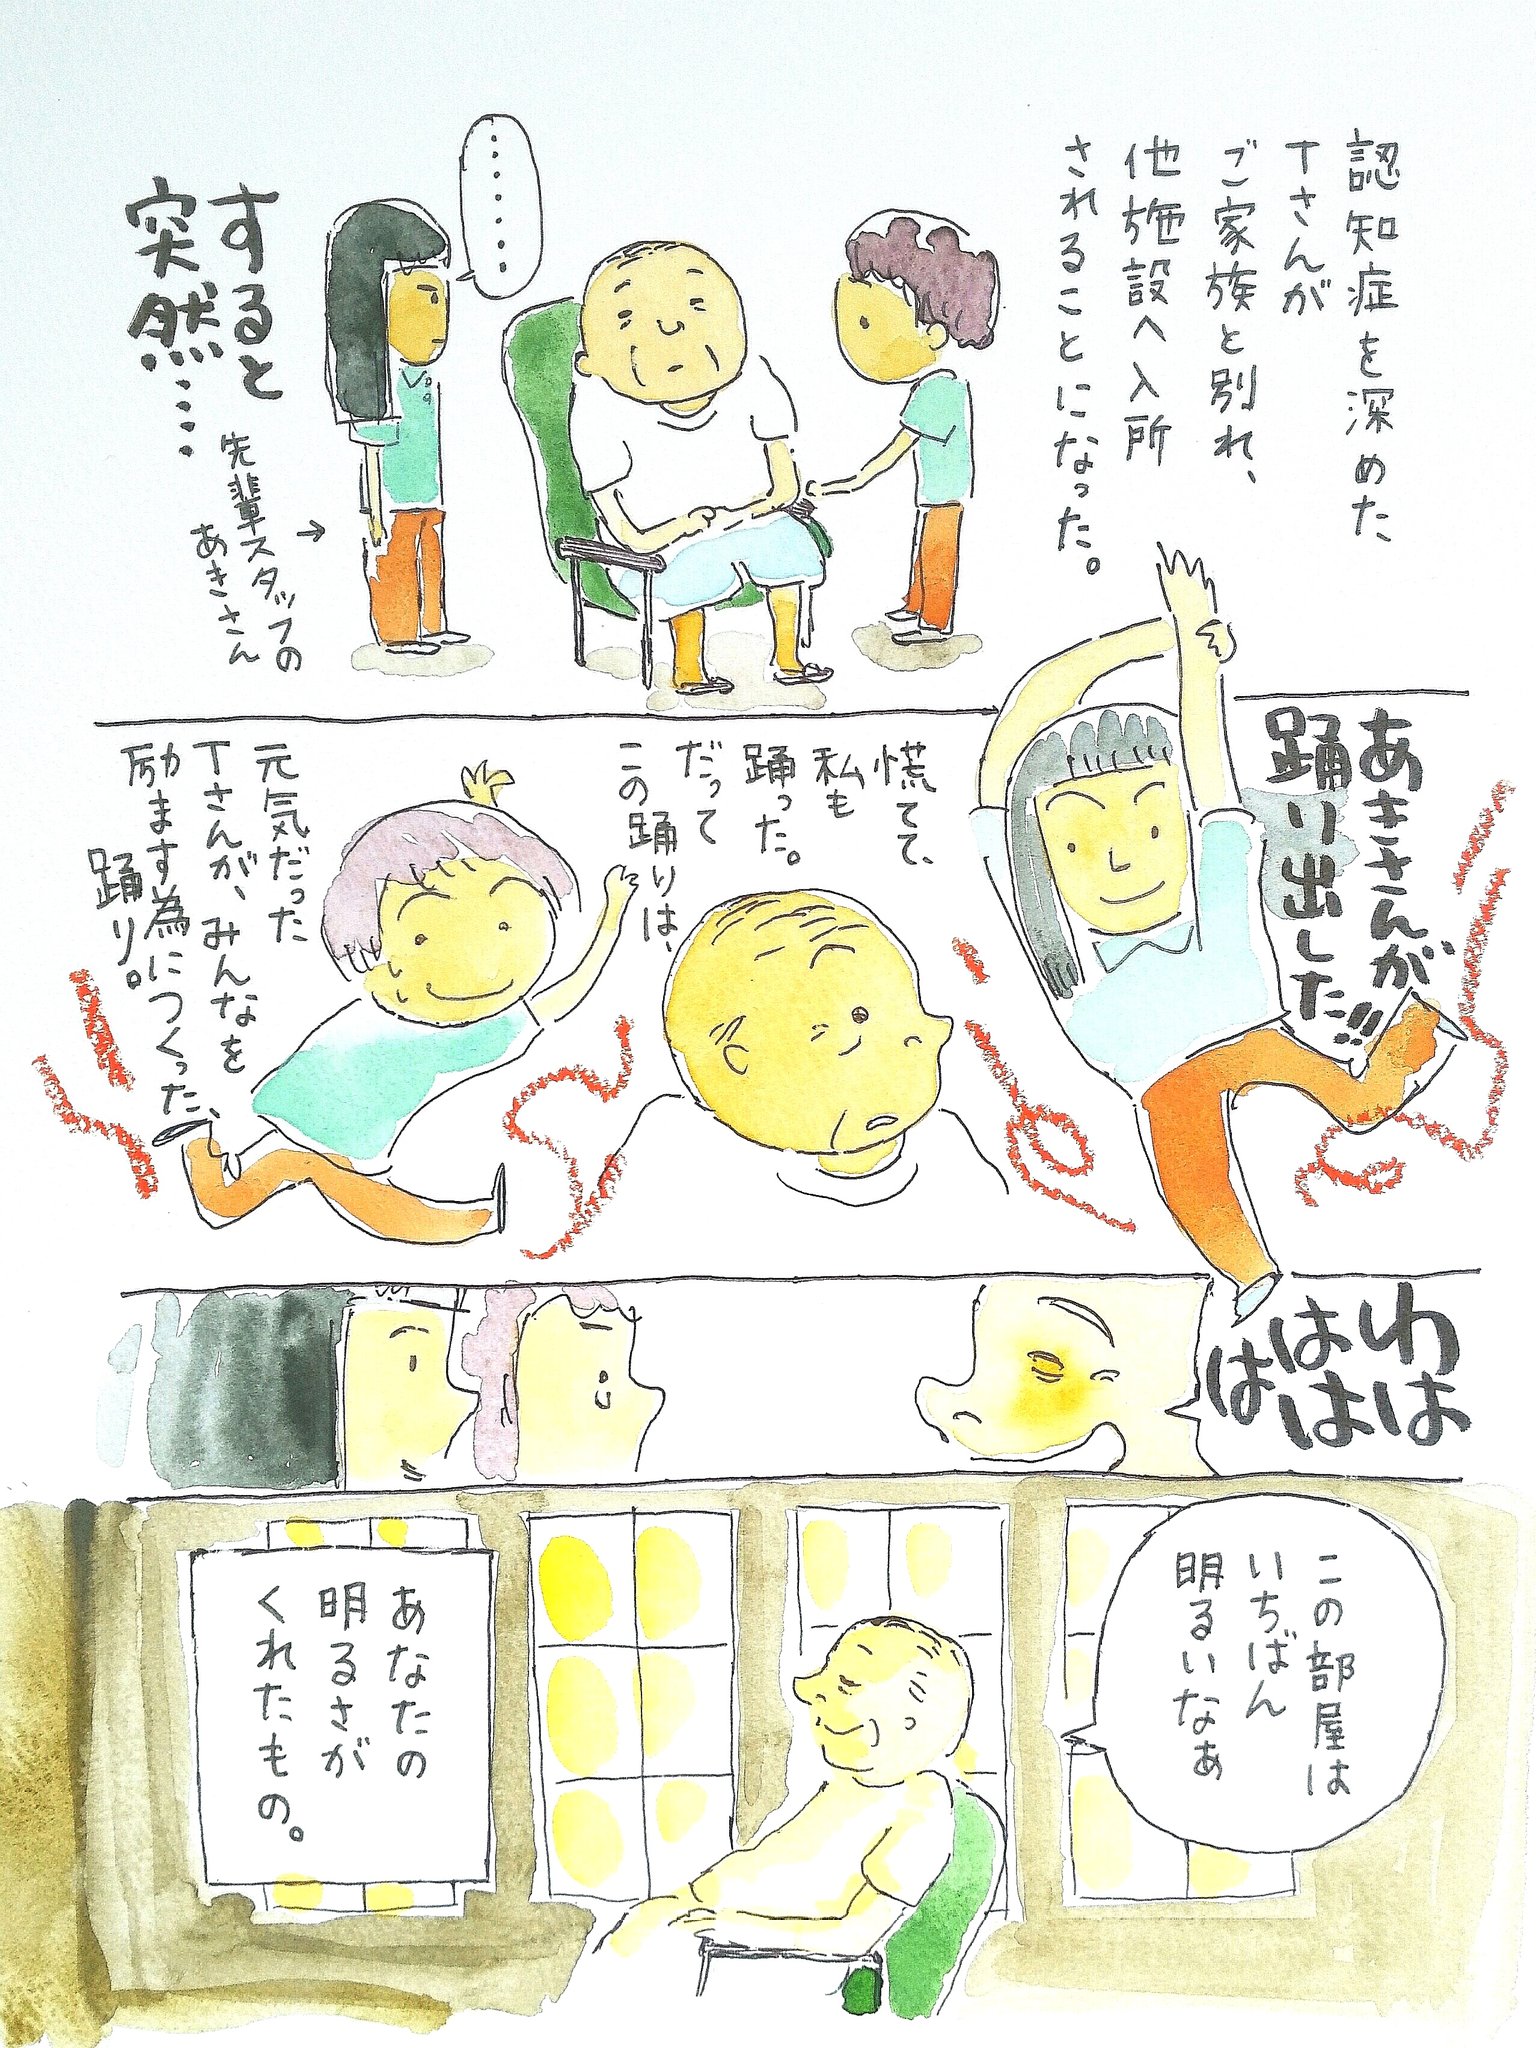 認知症を深めた
Tさんが
ご家族と別れ、
他施設へ入所
されることになった。
‥‥‥‥
すると
突然‥‥
→
先輩スタッフの
あきさん
あきさんが、
踊り出した!!!
慌てて、
私も
踊った。
だって
この踊りは、
元気だった
Tさんが、みんなを
励ます為につくった、
踊り。
わは
はは
は
この部屋は
いちばん
明るいなぁ
あなたの
明るさが
くれたもの。